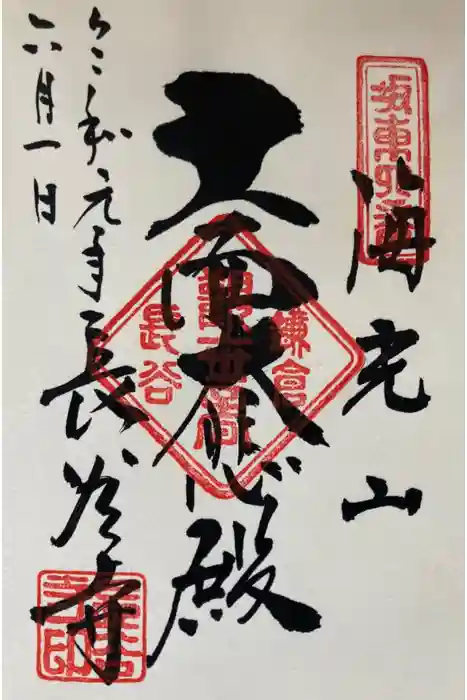 海光山
十一面大悲殿
令和元年
六月一日
長谷寺
鎌倉
長谷
長谷寺印